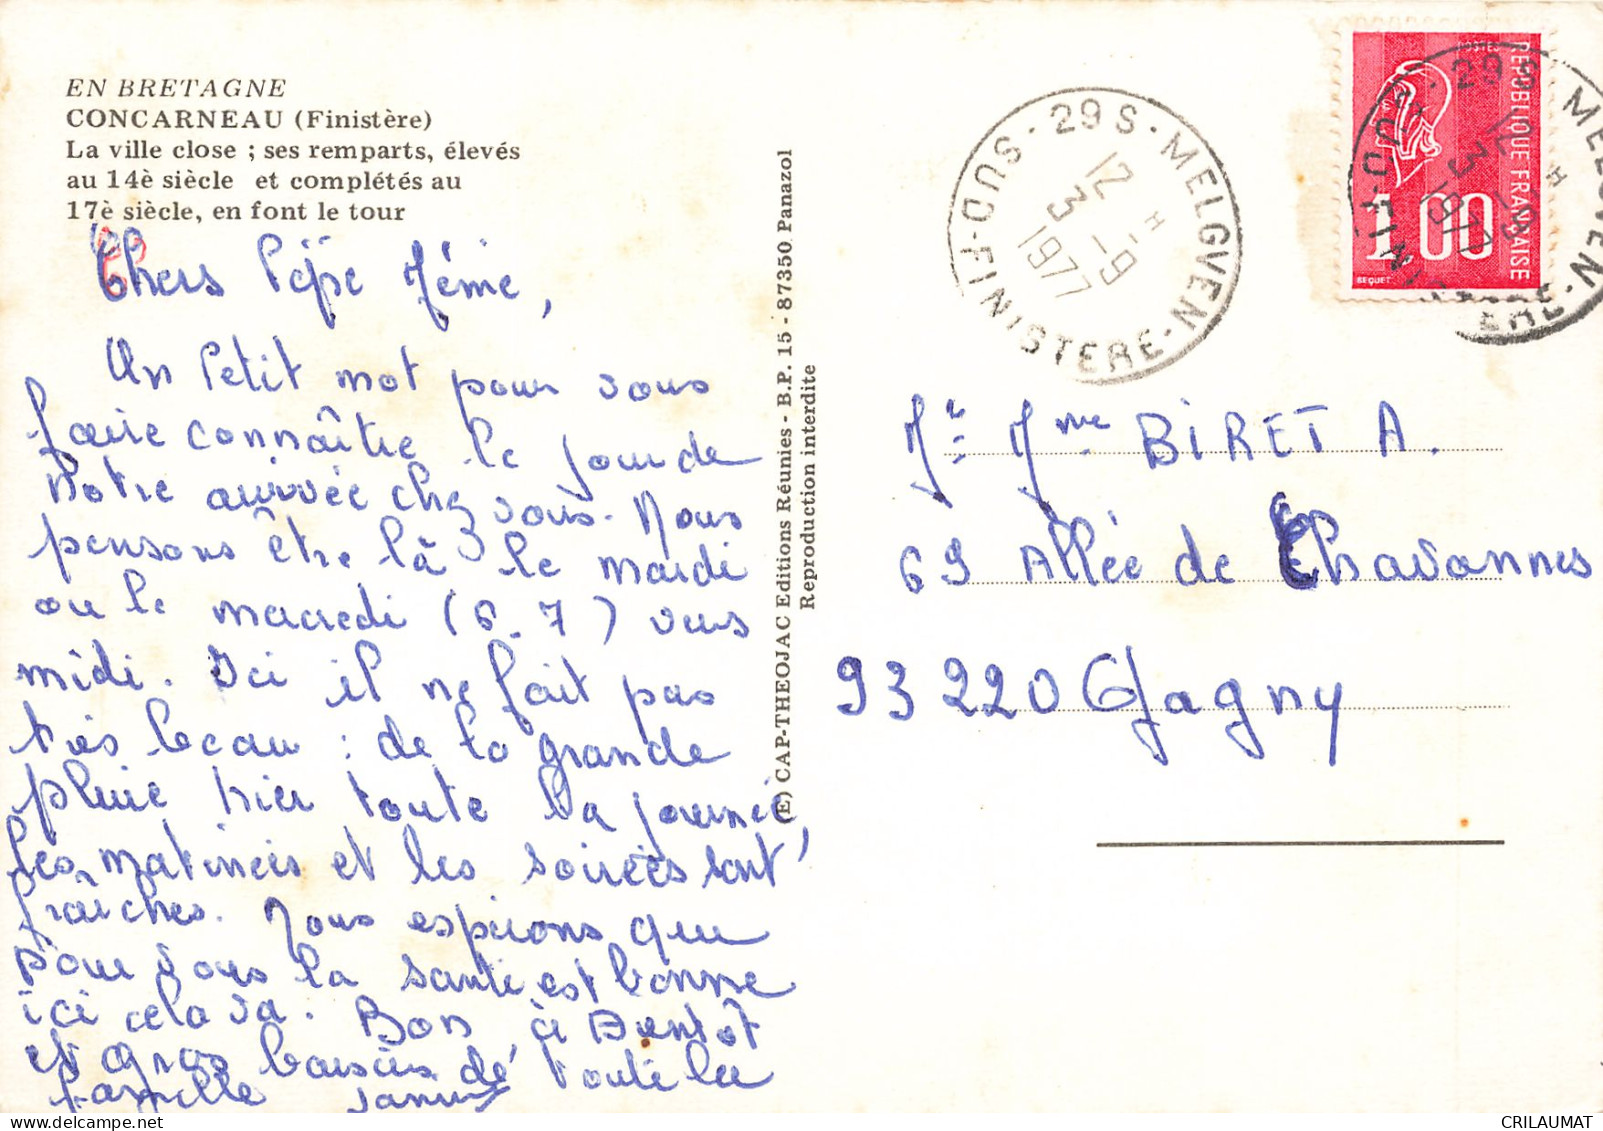 EN BRETAGNE
CONCARNEAU (Finistère)
La ville close ; ses remparts, élevés
au 14è siècle et complétés au
17è siècle, en font le tour
Chers Pépé Mémé,
Un Petit mot pour vous
faire connaître le jour de
Notre arrivée chez vous. Nous
pensons être là le mardi
ou le mercredi (6-7) vers
midi. Ici il ne fait pas
très beau : de la grande
pluie hier toute la journée,
les matinées et les soirées sont
fraîches. Nous espérons que
pour vous la santé est bonne
ici cela va. Bon à Bientôt
et gros baisers de toute la
famille
(E) CAP-THEOJAC Editions Réunies - B.P. 15 - 87350 Panazol
Reproduction interdite
29 S - MELGVEN - FINISTERE - SUD
12 H
3 - 9
1977
POSTES
REPUBLIQUE FRANCAISE
1.00
BEQUET
29 S MELGVEN - FINISTERE - SUD
12 H
3 - 9
1977
Mr Mme BIRET A.
69 Allée de Chavannes
93220 Gagny
CRILAUMAT